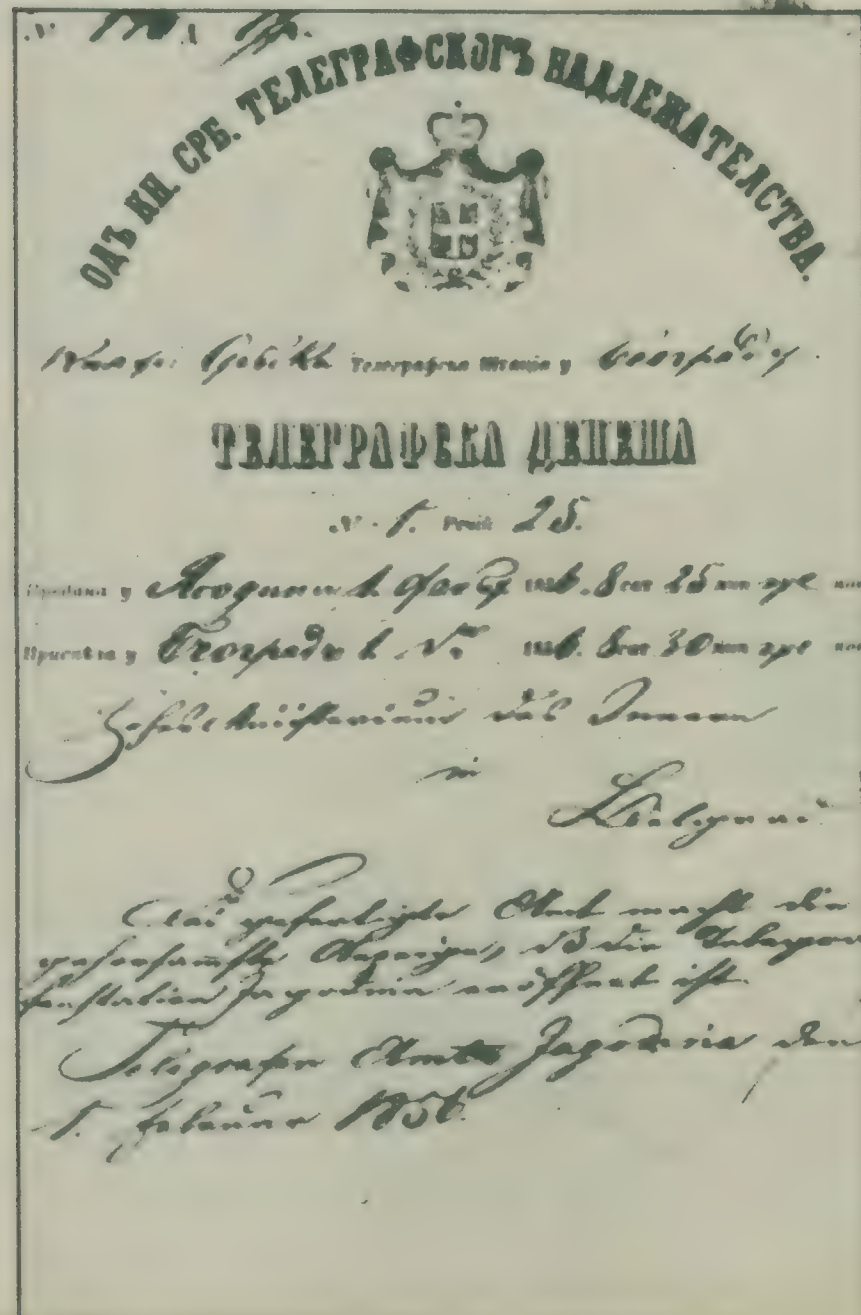 ОДЪ КН. СРБ. ТЕЛЕГРАФСКОГЪ НАДЛЕЖАТЕЛСТВА.
Телеграфска Штація у Београду
ТЕЛЕГРАФСКА ДЕПЕША
№ 1. Речій 25.
Предана у Ягодини 1 1856. 8 сат 25 мин пре
Приспѣла у Београду 1 1856. 8 сат 30 мин пре
des Innern
in
Belgrad
Das gefertigte Amt macht die
gehorsamste Anzeige, dß die Telegra
fenstation Jagodina eröffnet ist.
Telegrafen Amt Jagodina den
1. Februar 1856.